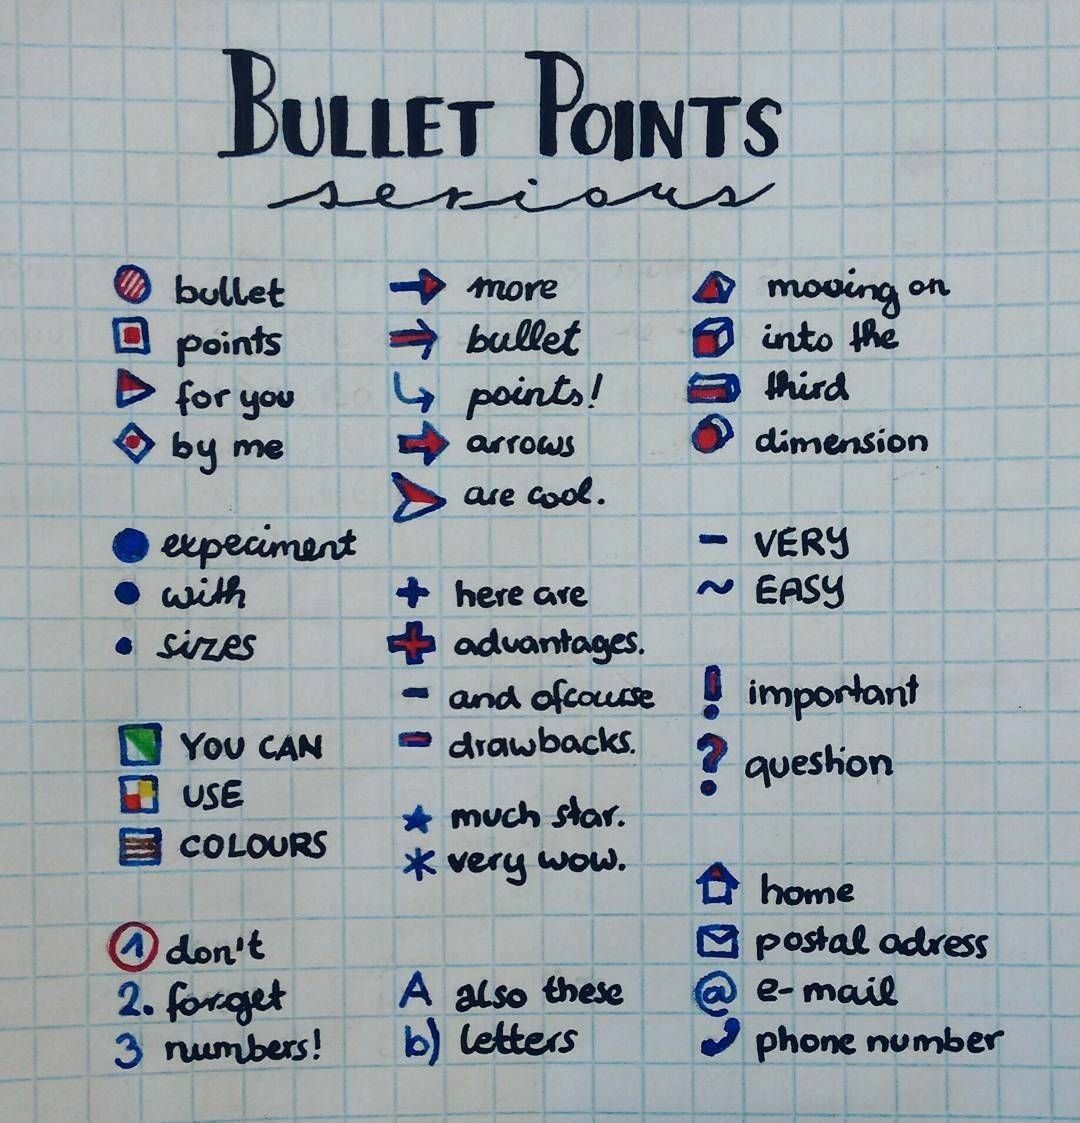 BULLET POINTS
serious
bullet
points
for you
by me
experiment
with
sizes
YOU CAN
USE
COLOURS
1 don't
2. forget
3 numbers!
more
bullet
points!
arrows
are cool.
+ here are
+ advantages.
- and ofcourse
- drawbacks.
★ much star.
* very wow.
A also these
b) letters
moving on
into the
third
dimension
- VERY
~ EASY
! important
? question
home
postal adress
@ e-mail
phone number